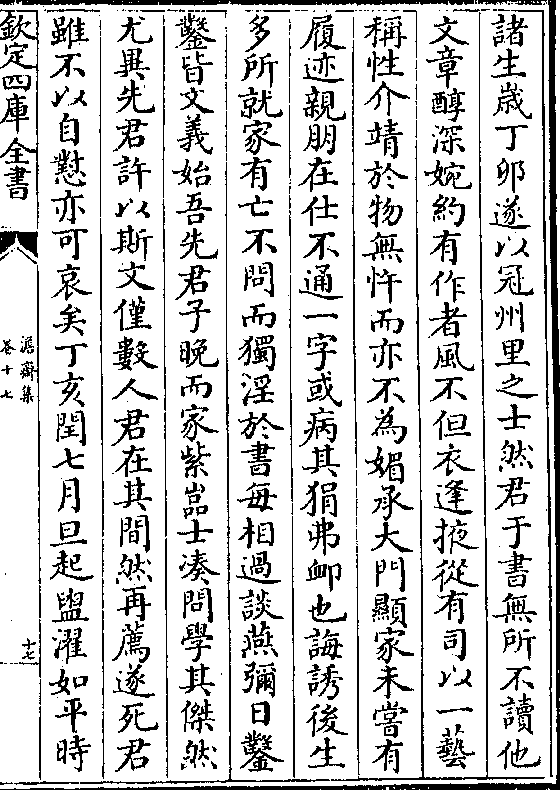 諸生歲丁卯遂以冠州里之士然君于書無所不讀他
文章醇深婉約有作者風不但衣逢掖從有司以一藝
稱性介靖於物無忤而亦不為媚承大門顯家未嘗有
履迹親朋在仕不通一字或病其狷弗卹也誨誘後生
多所就家有亡不問而獨淫於書每相過談燕彌日鑿
鑿皆文義始吾先君子晚而家紫嵓士湊問學其傑然
尤異先君許以斯文僅數人君在其間然再薦遂死君
雖不以自懟亦可哀矣丁亥閏七月旦起盥濯如平時
欽定四庫全書
潏齋集
卷十七
十七